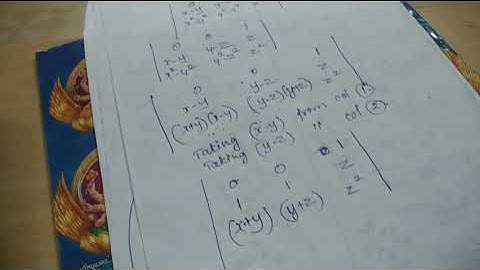 0 0 1
x-y y-z z
x²-y² y²-z² z²
0 0 1
x-y y-z z
(x+y)(x-y) (y-z)(y+z) z²
Taking (x-y) from col ①
Taking (y-z) " col ②
0 0 1
1 1 z
(x+y) (y+z) z²